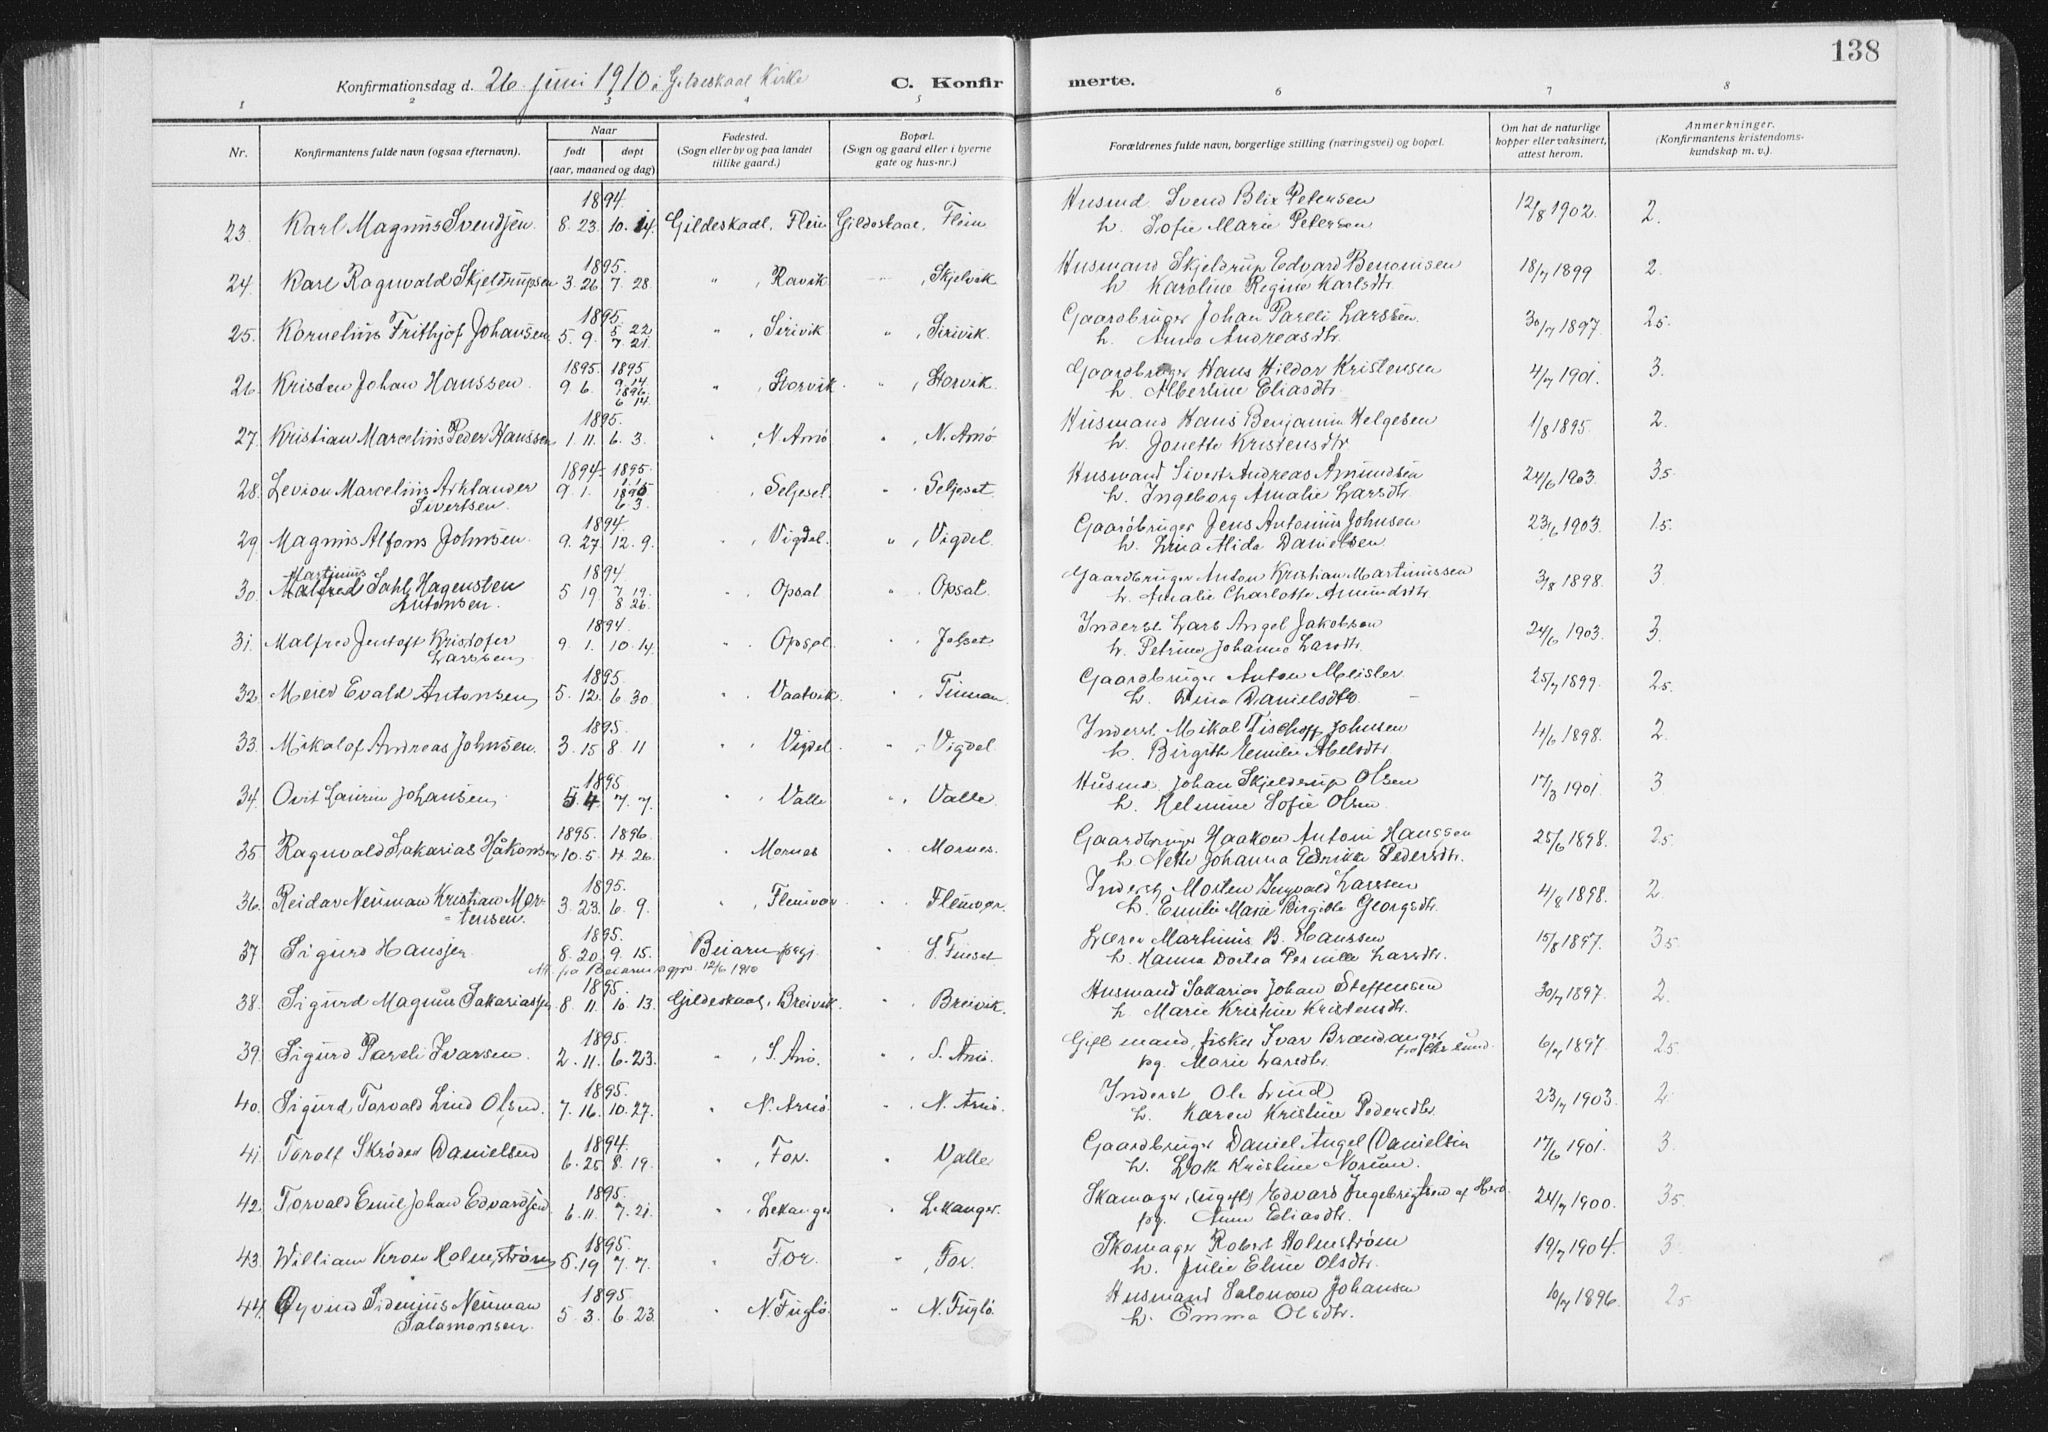 138
Konfirmationsdag d. 26. juni 1910 i Gildeskaal Kirke C. Konfir merte.
1 2 3 4 5 6 7 8
Nr. Konfirmantens fulde navn (ogsaa efternavn). Naar født døpt (aar, maaned og dag) Fødested. (Sogn eller by og paa landet tillike gaard.) Bopæl. (Sogn og gaard eller i byerne gate og hus-nr.) Forældrenes fulde navn, borgerlige stilling (næringsvei) og bopæl. Om hat de naturlige kopper eller vaksinert, attest herom. Anmerkninger. (Konfirmantens kristendomskundskap m. v.).
1894 Husmd. Svend Blix Petersen
23. Karl Magnus Svendsen. 8. 23. 10. 14. Gildeskaal, Flein Gildeskaal, Flein h. Sofie Marie Petersen 12/8 1902. 2.
1895. Husmand Skjeldrup Edvard Benonisen
24. Karl Ragnvald Skjeldrupsen 3. 26 7. 28 " , Ravik Skjelvik h. Karoline Regine Karlsdtr. 18/7 1899 2.
1895. Gaardbruger Johan Pareli Larssen.
25. Kornelius Frithjof Johansen 5. 9. 5 22 7. 21. " , Sirivik " , Sirivik. h. Anna Andreasdtr. 30/7 1897. 25.
1895. 1895. Gaardbruger Hans Hildor Kristensen
26. Kristen Johan Hanssen. 9. 6. 9. 14 1896. 6 14. " , Storvik. " , Storvik. h. Albertine Eliasdtr. 4/7 1901. 3.
1895. Husmand Hans Benjamin Helgesen
27. Kristian Marcelius Peder Hanssen 1. 11. 6. 3. " , N. Arnø " , N. Arnø h. Jonette Kristensdtr. 1/8 1895. 2.
1894. 1895. Husmand Sivert Andreas Amundsen
28. Levion Marcelius Arklander Sivertsen. 9. 1. 6 3. , Seljeset. , Seljeset. h. Ingeborg Amalie Larsdtr. 24/6 1903. 35.
1894. Gaardbruger Jens Antonius Johnsen
29. Magnus Alfons Johnsen. 9. 27. 12. 9. , Vigdel. " , Vigdel. h. Lina Alida Danielsen 23/6 1903. 15.
Martinus 1894 Gaardbruger Anton Kristian Martinussen
30. Malfred Dahl Hagensten Antonsen. 5 19 7 19. 8 26. Opsal Opsal. h. Amalie Charlotte Amundsdtr. 3/8 1898. 3.
1894. Inderst Lars Angel Jakobsen
31. Malfred Jentoft Kristofer Larssen 9. 1. 10. 14. Opsal. Jelset h. Petrine Johanna Larsdtr. 24/6 1903. 3.
1895. Gaardbruger Anton Meisler
32. Meier Evald Antonsen 5. 12. 6 30 Vaatvik. Finnan. h. Dina Danielsdtr. 25/7 1899. 25.
1895. Inderst Mikal Tischoff Johnsen
33. Mikalof Andreas Johnsen. 3. 15 8 11 , Vigdel. , Vigdel. h. Birgith Emilie Abelsdtr. 4/6 1898. 2.
1895 Husmd. Johan Skjeldrup Olsen
34. Ovit Laurin Johansen 5. 4 7. 7. , Valle , Valle. h. Helmine Sofie Olsen. 17/3 1901. 3
1895. 1896. Gaardbruger Haakon Antoni Hanssen
35. Ragnvald Sakarias Håkonsen 10. 5. 4. 26. , Mornes Mornes. h. Nette Johanna Pedersdtr. 25/6 1898. 25.
1895. Inderst Morten Ingvald Larssen
36. Reidar Neuman Kristian Mortensen. 3. 23. 6. 9. , Fleinvær Fleinvær. h. Emilie Marie Birgitte Georgsdtr. 4/8 1898. 2.
1895. Lærer Martinus B. Hanssen
37. Sigurd Hansen. 8. 20. 9. 15. Beiarn prgj. S. Finset. h. Hanna Dortea Pernille Larsdtr. 15/8 1897. 35.
Att. fra Beiarn sgpr. 12/6 1910
1895. Husmand Sakarias Johan Steffensen
38. Sigurd Magnus Sakariassen 8. 11. 10. 13. Gildeskaal, Breivik. Breivik. h. Marie Kristine Kristensdtr. 30/7 1897. 2.
1895. Gift mand, fisker Ivar Brændanger
39. Sigurd Pareli Ivarsen. 2. 11. 6. 23. , S. Arnø. " , S. Arnø. pg. Marie Larsdtr. 6/7 1897. 25.
1895. Inderst Ole Lund
40. Sigurd Torvald Lind Olsen. 7. 16. 10. 27. " N. Arnø. N. Arnø. h. Karen Kristine Pedersdtr. 23/7 1903. 2.
1894. Gaardbruger Daniel Angel Danielsen
41. Torolf Skrøder Danielsen 6. 25 8. 19. " , For. " Valle. h. Kristine Norum. 17/6 1901. 3.
1895. Skomager, (ugift) Edvard Ingebrigtsen af Herø.
42. Torvald Emil Johan Edvardsen 6. 11. 7. 21. , Lekanger Lekanger. pg. Anna Eliasdtr. 24/7 1900. 35.
1895. Skomager Robert Holmstrøm
43. William Kron Holmstrøm 5. 19 7. 7. " For. " , For. h. Julie Eline Olsdtr. 19/7 1904. 3
1895 Husmand Salomon Johansen
44. Øyvind Sidenius Neuman Salamonsen. 5 3. 6. 23. " N. Fuglø. " N. Fuglø. h. Emma Olsdtr. 10/7 1896. 25